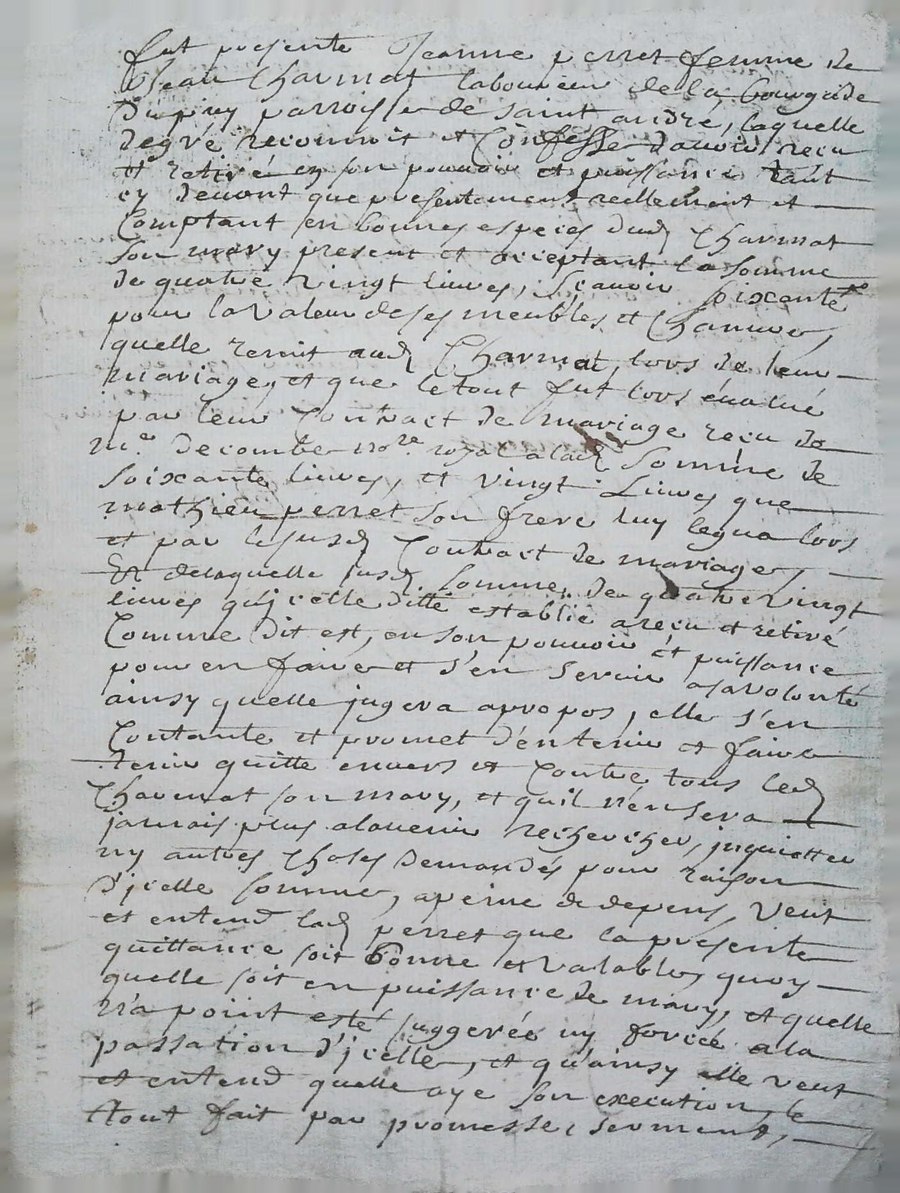 fut presente Jeanne perret femme de
Jean Charmat laboureur de la bourgade
Dupuy parroisse de saint andré, laquelle
degré reconnoit et Confesse d'avoir recu
et retiré en son pouvoir et puissance tant
cy devant que presentement reellement et
Comptant en bonnes especes dud Charmat
son mary present et acceptant la somme
de quatre vingt livres, scavoir soixante
pour la valeur de ses meubles et Chanvre,
quelle remit aud Charmat, lors de leur
mariage, et que le tout fut lors évalué
par leur Contract de mariage recu de
me. Decombe nore. royal a lad somme de
soixante livres, et vingt Livres que
mathieu perret son frere luy legua lors
et par le susd Contract de mariage,
Et delaquelle susd somme, de quatre vingt
livres qu'jcelle ditte establie a recu et retiré
Comme dit est, en son pouvoir et puissance
pour en faire et s'en servir a sa volonté
ainsy quelle jugera apropos, elle s'en
Contante et promet d'en tenir et faire
tenir quitte envers et Contre tous led
Charmat son mary, et quil n'en sera
jamais plus alavenir rechercher, jnquietter
ny autres Choses demandés pour raison
d'jcelle somme, a peine de depens, veut
et entend lad perret que la presente
quittance soit bonne et valable, quoy
quelle soit en puissance de mary, et quelle
n'a point esté suggerée ny forcée ala
passation d'jcelle, et qu'ainsy elle veut
et entend quelle aye son execution, le
tout fait par promesse, serment,